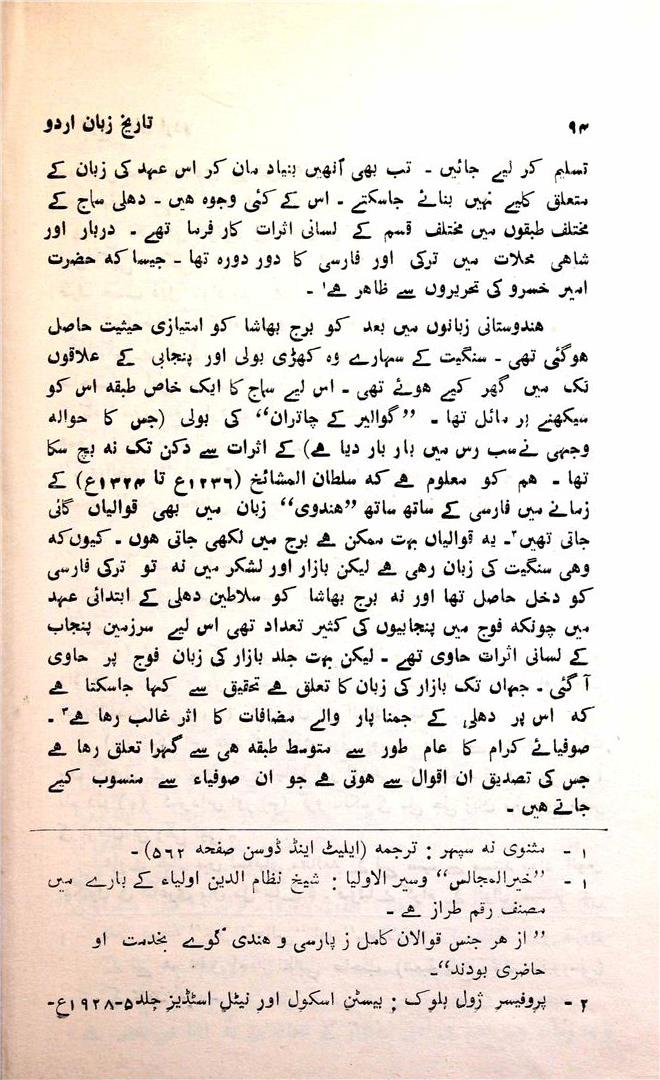 ۹۴
تاریخ زبان اردو
تسلیم کر لیے جائیں ۔ تب بھی اُنھیں بنیاد مان کر اس عہد کی زبان کے
متعلق کلیے نہیں بنائے جاسکتے ۔ اس کے کئی وجوہ ہیں ۔ دہلی سماج کے
مختلف طبقوں میں مختلف قسم کے لسانی اثرات کار فرما تھے ۔ دربار اور
شاہی محلات میں ترکی اور فارسی کا دور دورہ تھا ۔ جیسا کہ حضرت
امیر خسرو کی تحریروں سے ظاہر ہے۱ ۔
ہندوستانی زبانوں میں بعد کو برج بھاشا کو امتیازی حیثیت حاصل
ہوگئی تھی ۔ سنگیت کے سہارے وہ کھڑی بولی اور پنجابی کے علاقوں
تک میں گھر کیے ہوئے تھی ۔ اس لیے سماج کا ایک خاص طبقہ اس کو
سیکھنے پر مائل تھا ۔ ”گوالیر کے چاتراں“ کی بولی (جس کا حوالہ
وجہی نے سب رس میں بار بار دیا ہے) کے اثرات سے دکن تک نہ بچ سکا
تھا ۔ ہم کو معلوم ہے کہ سلطان المشائخ (۱۲۳۶ع تا ۱۳۲۴ع) کے
زمانے میں فارسی کے ساتھ ساتھ ”ہندوی“ زبان میں بھی قوالیاں گائی
جاتی تھیں۲۔ یہ قوالیاں بہت ممکن ہے برج میں لکھی جاتی ہوں ۔ کیوں‌کہ
وہی سنگیت کی زبان رہی ہے لیکن بازار اور لشکر میں نہ تو ترکی فارسی
کو دخل حاصل تھا اور نہ برج بھاشا کو سلاطین دہلی کے ابتدائی عہد
میں چونکہ فوج میں پنجابیوں کی کثیر تعداد تھی اس لیے سرزمین پنجاب
کے لسانی اثرات حاوی تھے ۔ لیکن بہت جلد بازار کی زبان فوج پر حاوی
آ گئی ۔ جہاں تک بازار کی زبان کا تعلق ہے تحقیق سے کہا جاسکتا ہے
کہ اس پر دہلی کے جمنا پار والے مضافات کا اثر غالب رہا ہے۳ ۔
صوفیائے کرام کا عام طور سے متوسط طبقہ ہی سے گہرا تعلق رہا ہے
جس کی تصدیق ان اقوال سے ہوتی ہے جو ان صوفیاء سے منسوب کیے
جاتے ہیں ۔
۱ ۔ مثنوی نہ سپہر : ترجمہ (ایلیٹ اینڈ ڈوسن صفحہ ۵۶۲) ۔
۱ ۔ ”خیرالمجالس“ وسیر الاولیا : شیخ نظام الدین اولیاء کے بارے میں
مصنف رقم طراز ہے ۔
” از ہر جنس قوالان کامل ز پارسی و ہندی گوے بخدمت او
حاضری بودند“۔
۲ ۔ پروفیسر ژول بلوک : بیسٹن اسکول اور نیٹل اسٹڈیز جلد۵-۱۹۲۸ع۔